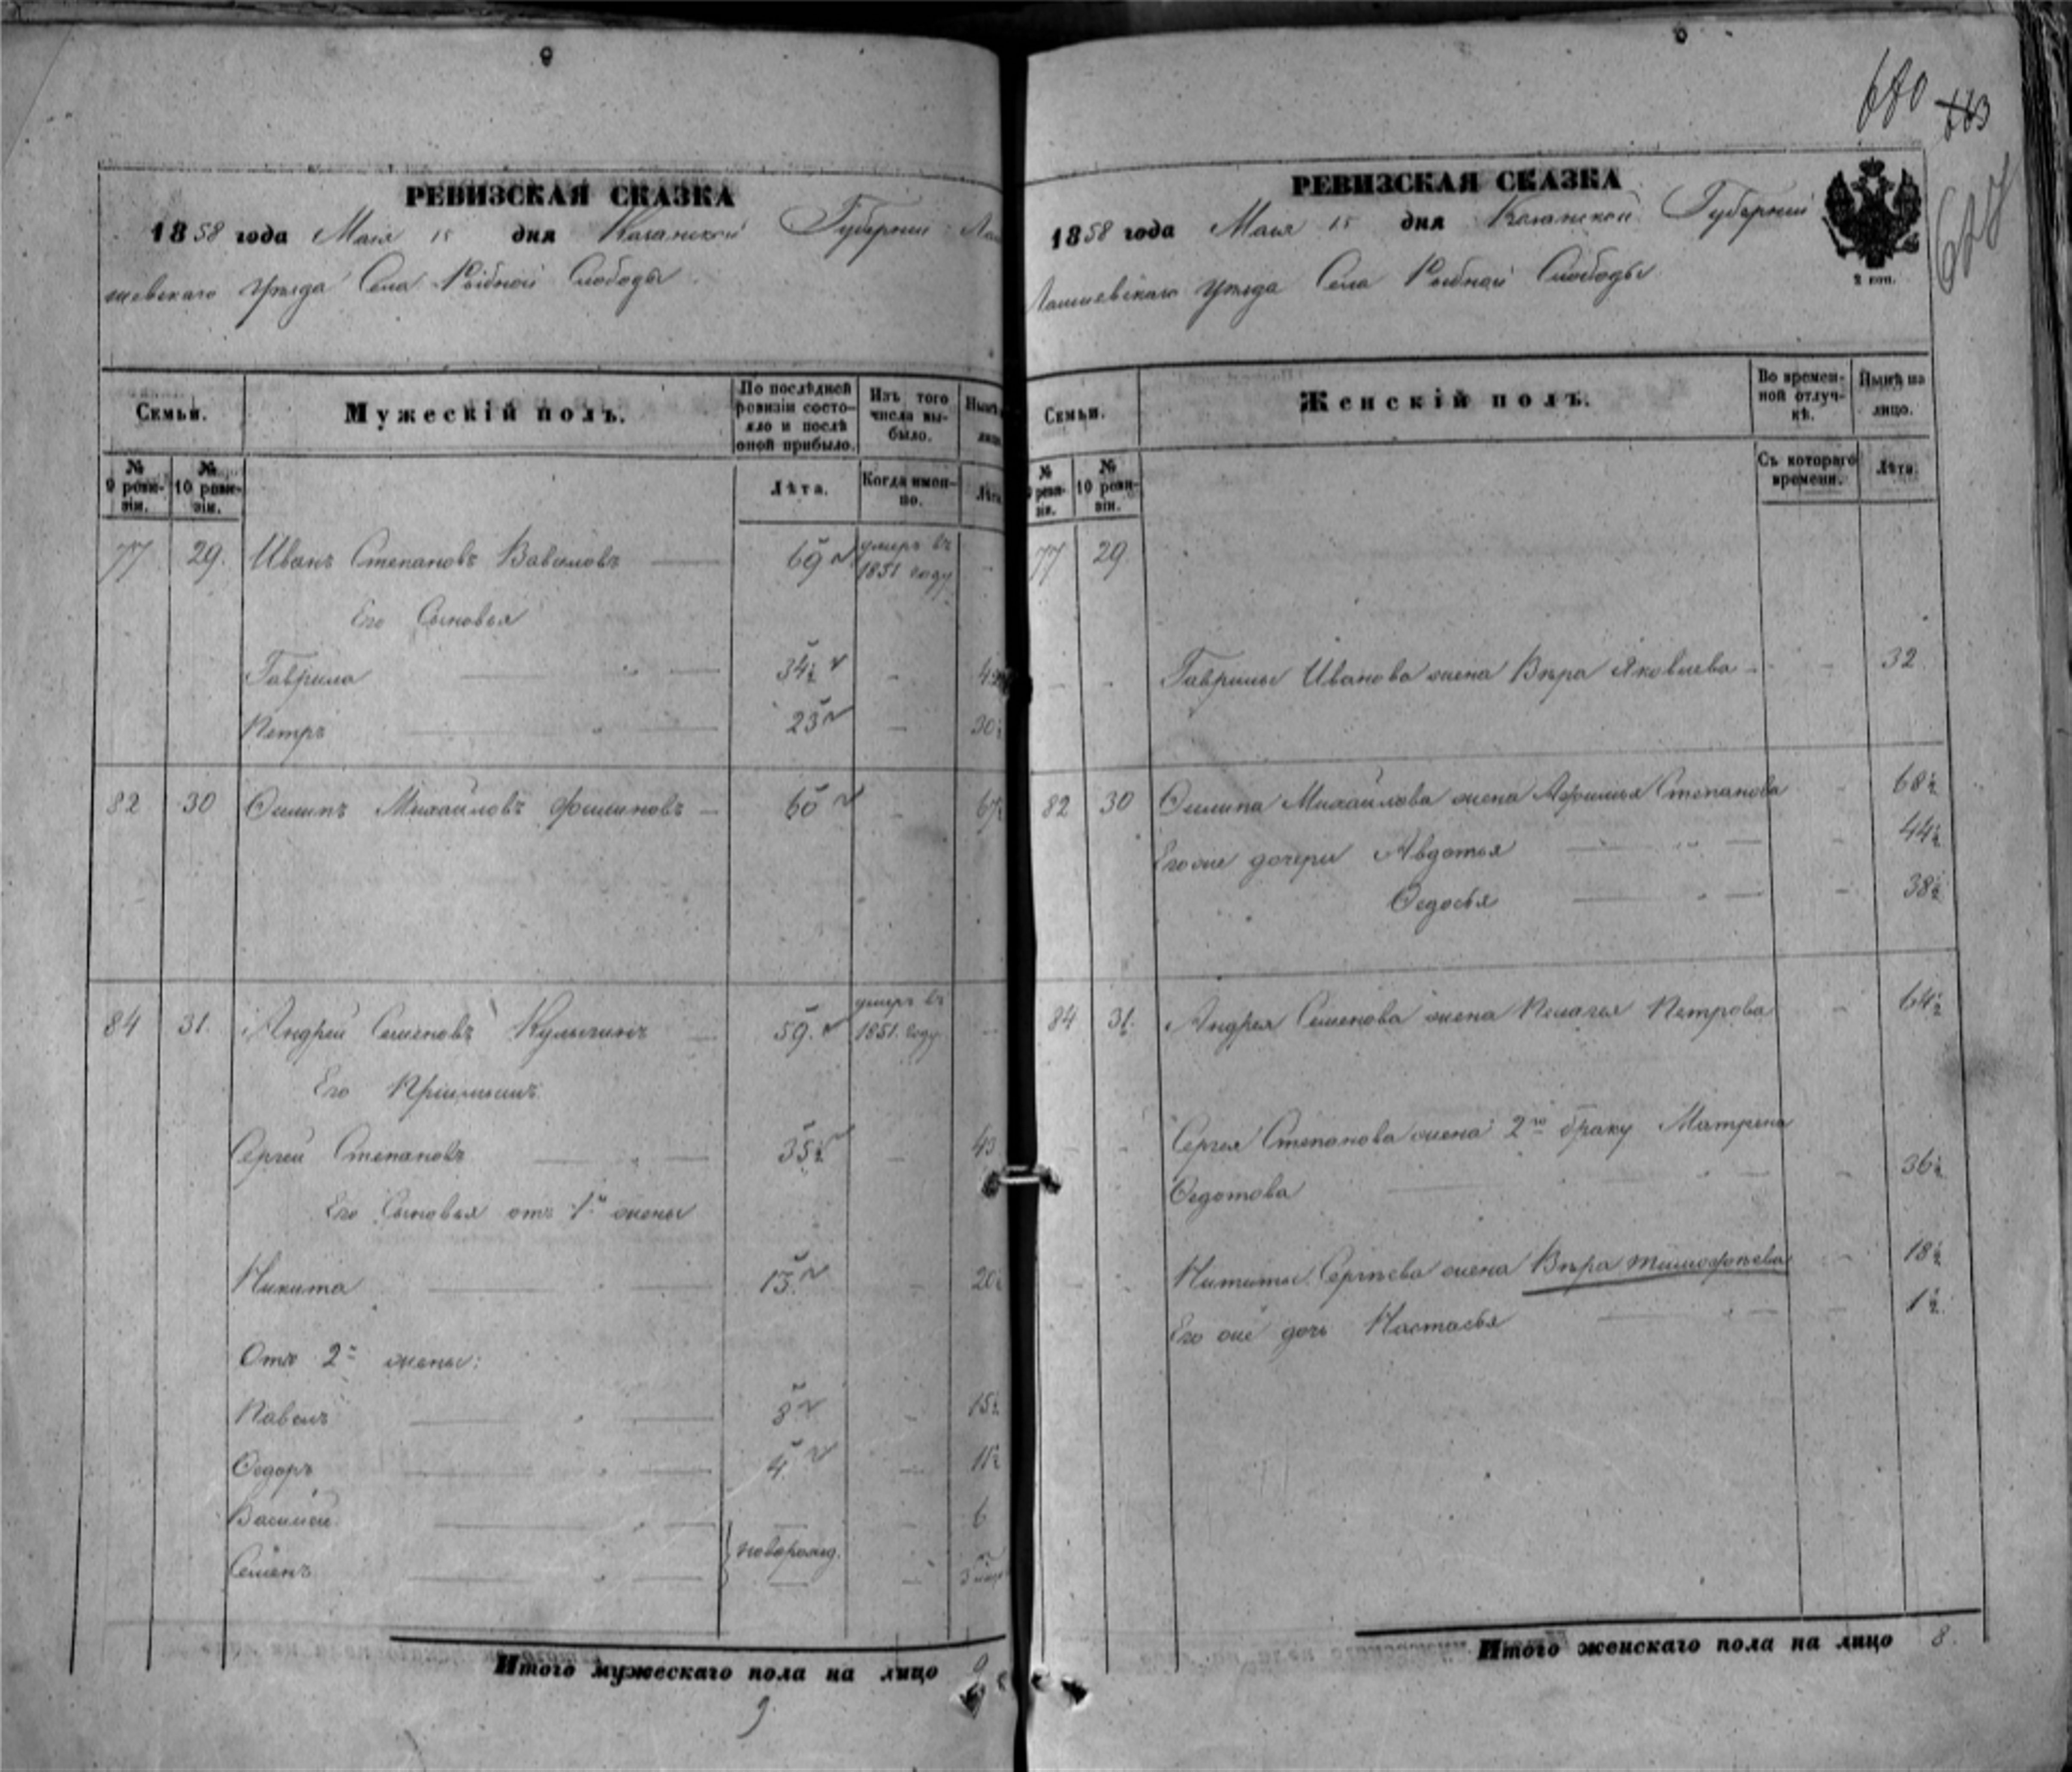 680 663
627
РЕВИЗСКАЯ СКАЗКА
1858 года Мая 15 дня Казанской Губернии Лаи
шевскаго Уѣзда Села Рыбной Слободы
Семьи.
Мужескій полъ.
По послѣдней ревизіи состояло и послѣ оной прибыло.
Изъ того числа выбыло.
Нынѣ лицо
№ 9 ревизіи.
№ 10 ревизіи.
Лѣта.
Когда именно.
Лѣта
77 29. Иванъ Степановъ Вавиловъ 69 умеръ въ 1851 году -
Его Сыновья
Гаврила " 34½ - 42
Петръ " 23 - 30½
82 30 Осипъ Михайловъ 60 - 67½
84 31. Андрей Семеновъ Кулыгинъ 59. умеръ въ 1851. году -
Его Пріимышъ
Сергей Степановъ " 35½ - 43
Его Сыновья отъ 1й жены
Никита " 13. - 20½
Отъ 2й жены:
Павелъ " 8 - 15½
Ѳедоръ " 4. - 11½
Василей " - 6
новорожд.
Семенъ " - 3 мѣся
Итого мужескаго пола на лицо 9
9.
РЕВИЗСКАЯ СКАЗКА
1858 года Мая 15 дня Казанской Губернии
2 коп.
Лаишевскаго Уѣзда Села Рыбной Слободы
Семьи.
Женскій полъ.
Во временной отлучкѣ.
Нынѣ на лицо.
№ 9 ревизіи.
№ 10 ревизіи.
Съ котораго времени.
Лѣта.
77 29
Гаврилы Иванова жена Вѣра Яковлева - 32
82 30 Осипа Михайлова жена Афимья Степанова - 68½
Его же дочери Авдотья " - 44½
Ѳедосья " - 38½
84 31. Андрея Семенова жена Пелагея Петрова - 64½
Сергея Степанова жена 2го браку Матрена
Ѳедотова - 36½
Никиты Сергѣева жена Вѣра Тимофѣева - 18½
Его же дочь Настасья " - 1½
Итого женскаго пола на лицо 8.